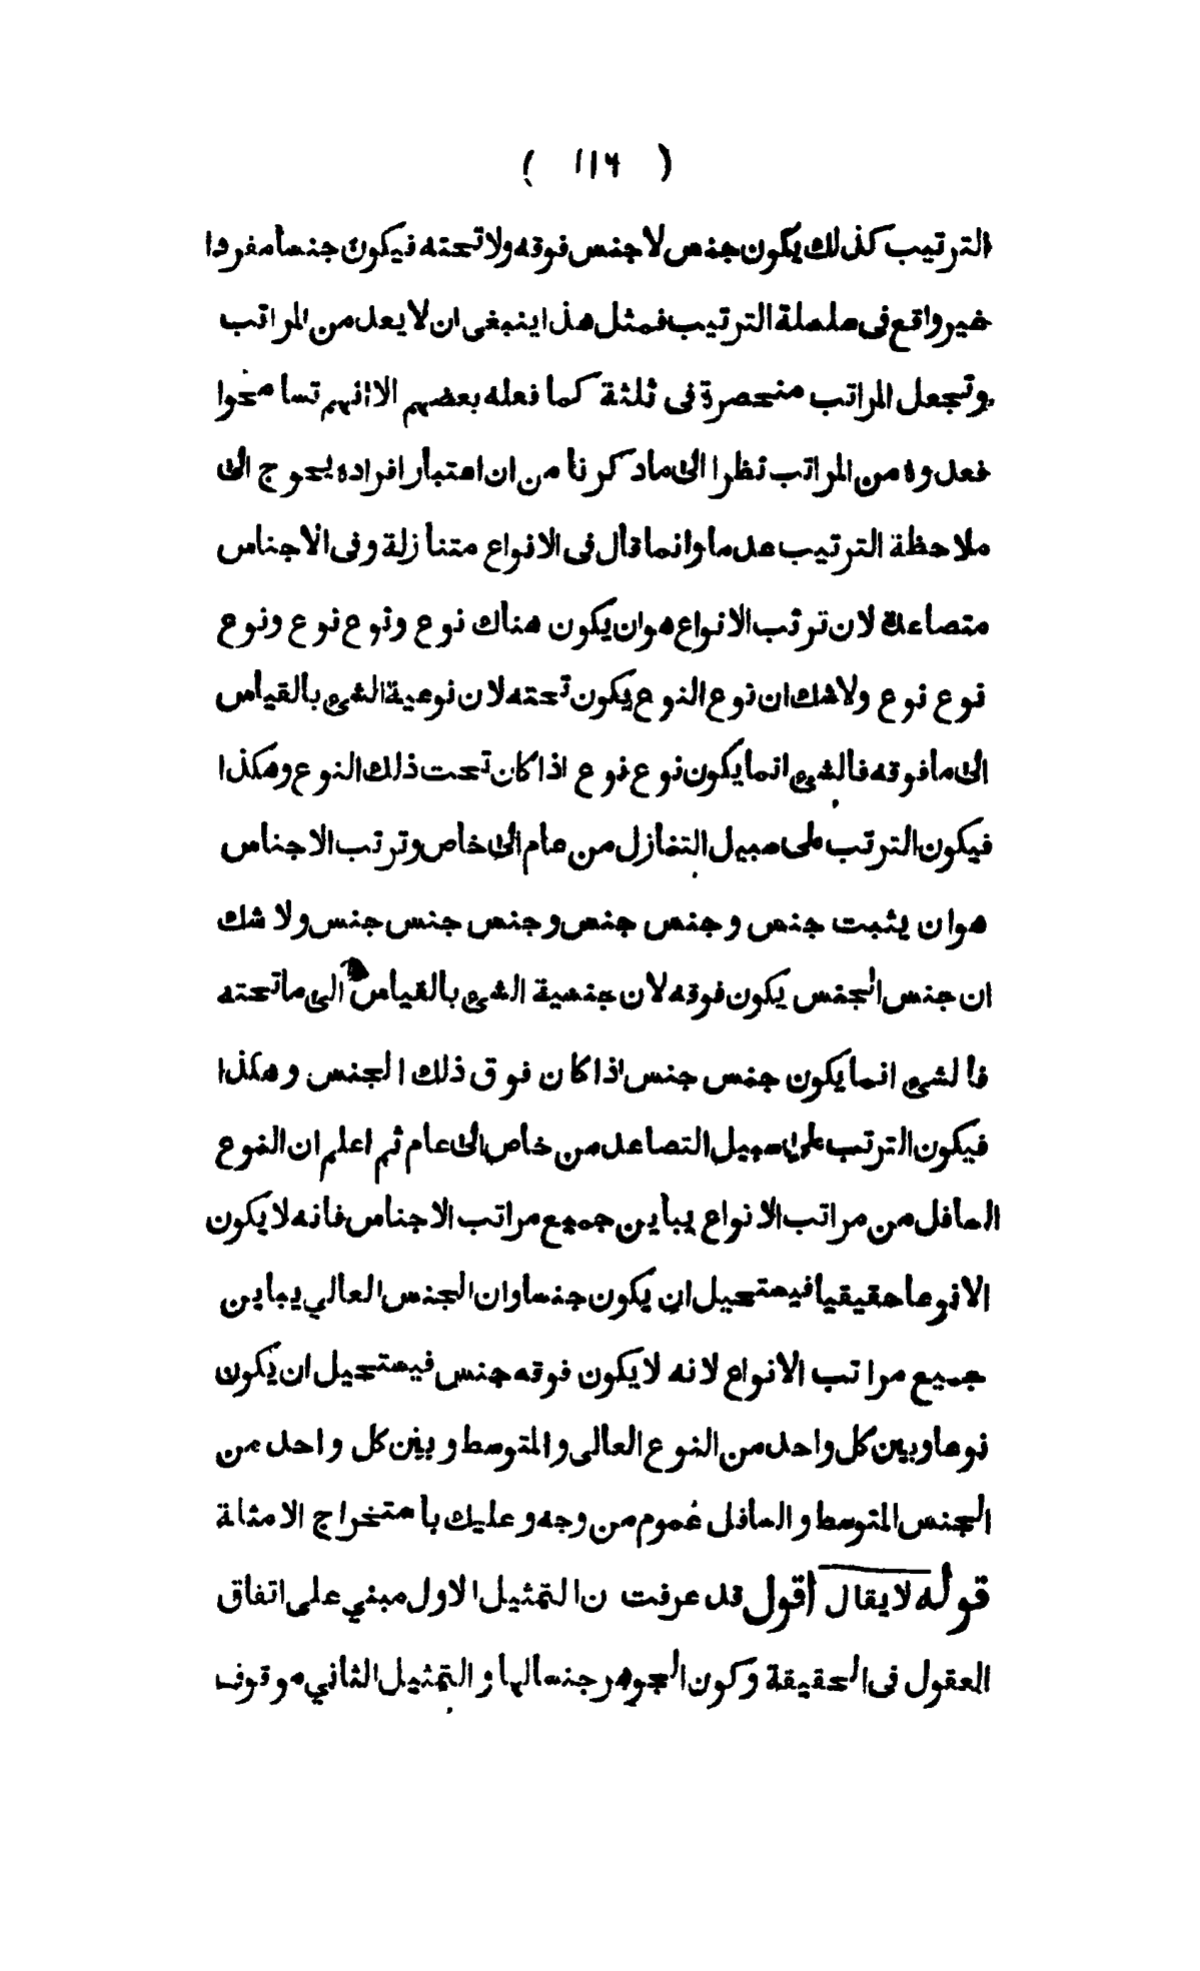 ( ١١٦ )
الترتيب كذلك يكون جنس لا جنس فوقه ولا تحته فيكون جنسا مفردا
غير واقع فى سلسلة الترتيب فمثل هذا ينبغى ان لا يعد من المراتب
وتجعل المراتب منحصرة فى ثلثة كما فعله بعضهم الا انهم تسامحوا
فعدوه من المراتب نظرا الى ماذكرنا من ان اعتبار افراده يحوج الى
ملاحظة الترتيب عدما وانما قال فى الانواع متنازلة وفى الاجناس
متصاعدة لان ترتب الانواع هو ان يكون هناك نوع ونوع نوع ونوع
نوع نوع ولاشك ان نوع النوع يكون تحته لان نوعية الشئ بالقياس
الى ما فوقه فالشئ انما يكون نوع نوع اذا كان تحت ذلك النوع وهكذا
فيكون الترتب على سبيل التنازل من عام الى خاص وترتب الاجناس
هو ان يثبت جنس وجنس جنس وجنس جنس جنس ولا شك
ان جنس الجنس يكون فوقه لان جنسية الشئ بالقياس الى ما تحته
فالشئ انما يكون جنس جنس اذا كان فوق ذلك الجنس وهكذا
فيكون الترتب على سبيل التصاعد من خاص الى عام ثم اعلم ان النوع
السافل من مراتب الانواع يباين جميع مراتب الاجناس فانه لا يكون
الا نوعا حقيقيا فيستحيل ان يكون جنسا وان الجنس العالي يباين
جميع مراتب الانواع لانه لا يكون فوقه جنس فيستحيل ان يكون
نوعا وبين كل واحد من النوع العالى والمتوسط وبين كل واحد من
الجنس المتوسط والسافل عموم من وجه وعليك باستخراج الامثلة
قوله لا يقال اقول قد عرفت ن التمثيل الاول مبني على اتفاق
العقول فى الحقيقة وكون الجوهر جنسا لها والتمثيل الثاني موقوف